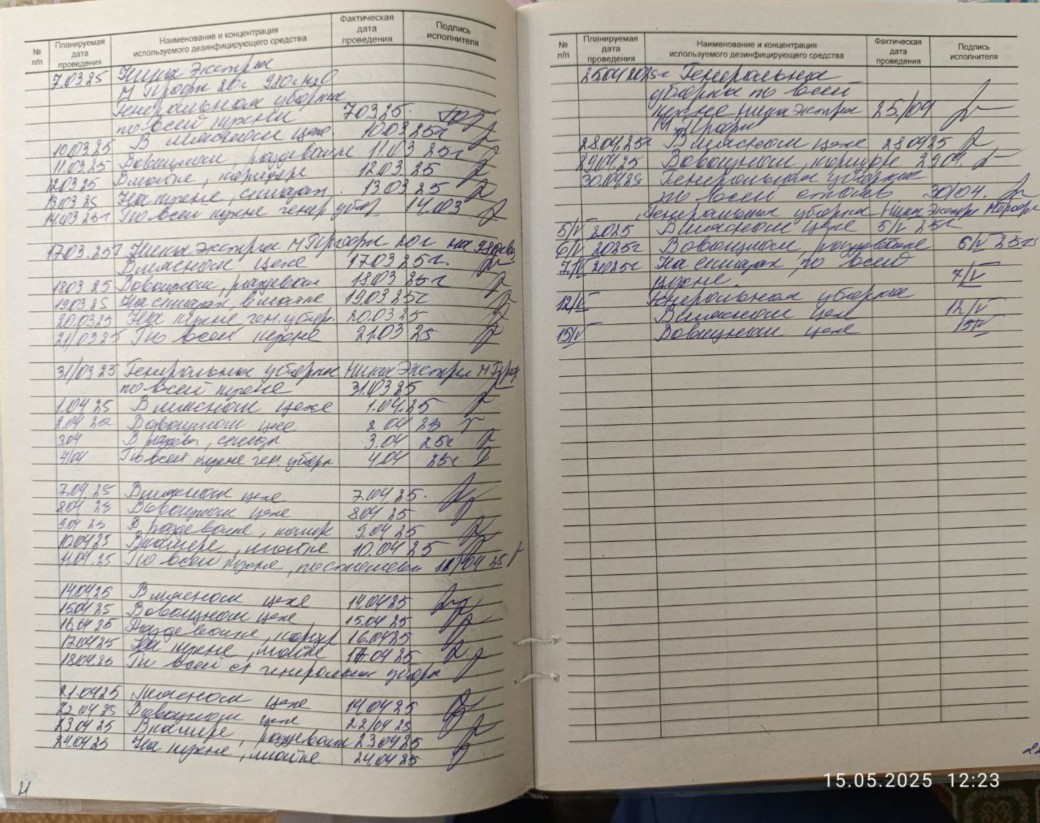 № п/п Планируемая дата проведения Наименование и концентрация используемого дезинфицирующего средства Фактическая дата проведения Подпись исполнителя
7.03.25 Ника Экстра
М Профи 20г 980г H2O
Генеральная уборка
по всей кухни 7.03.25.
10.03.25 В мясном цехе 10.03.25г
11.03.25 В овощном, раздевалке 11.03.25г
12.03.25 В мойке, коридоре 12.03.25
13.03.25 На кухне, складах 13.03.25
14.03.25г По всей кухне генер убор 14.03
17.03.25г Ника Экстра М Профи 20г на
В мясном цехе 17.03.25г.
18.03.25 В овощном, раздевал 18.03.25г
19.03.25 На складах в мойке 19.03.25г
20.03.25 На кухне ген. убор. 20.03.25
21/03.25 По всей кухне 21.03.25
31/03.25 Генеральная уборка Ника Экстра М Проф
по всей кухне 31.03.25
1.04.25 В мясном цехе 1.04.25
2.04.25 В овощном цехе 2.04.25
3.04 В раздев, склады 3.04 25г
4/04 По всей кухне ген. уборк 4.04 25г
7.04.25 В мясном цехе 7.04.25.
8.04.25 В овощном цехе 8.04.25
9.04.25 В раздевалке, коридор 9.04.25
10.04.25 В коридоре, мойке 10.04.25
11.04.25 По всей кухне, 11/04.25
14.04.25 В мясном цехе 14.04.25
15.04.25 В овощном цехе 15.04.25
16.04.25 Раздевалке, корид 16.04.25
17.04.25 На кухне, мойке 17.04.25
18.04.25 По всей ст генеральная уборк
21.04.25 Мясном цехе
22.04.25 В овощном цехе 22/04.25
23.04.25 В коридоре, раздевалк 23.04.25
24.04.25 На кухне, мойке 24.04.25
21
№ п/п Планируемая дата проведения Наименование и концентрация используемого дезинфицирующего средства Фактическая дата проведения Подпись исполнителя
25.04.2025г Генеральная
уборка по всей
кухне Ника Экстра 25/04
М Профи
28.04.25г В мясном цехе 28.04.25
29.04.25 В овощном, коридоре 29.04
30.04.25 Генеральная уборка
по всей столов. 30/04.
Генеральная уборка Ника Экстра М Профи
5/V 2025 В мясном цехе 5/V 25г
6/V 2025г В овощном, раздевалке 6/V 25г
7/V 2025г На складах, по всей
кухне. 7/V
12/V Генеральная уборка
В мясном цехе 12/V
15/V В овощном цехе 15/V
15.05.2025 12:23